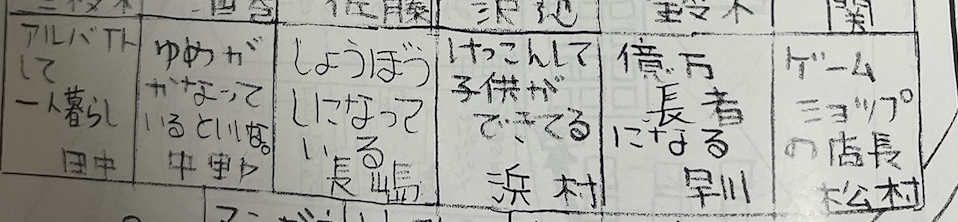 佐藤
鈴木
関
アルバイト
して
一人暮らし
田中
ゆめが
かなって
いるといいな。
中野
しょうぼう
しになって
いる
長嶋
けっこんして
子供が
できてる
浜村
億万
長者
になる
早川
ゲーム
ショップ
の店長
松村